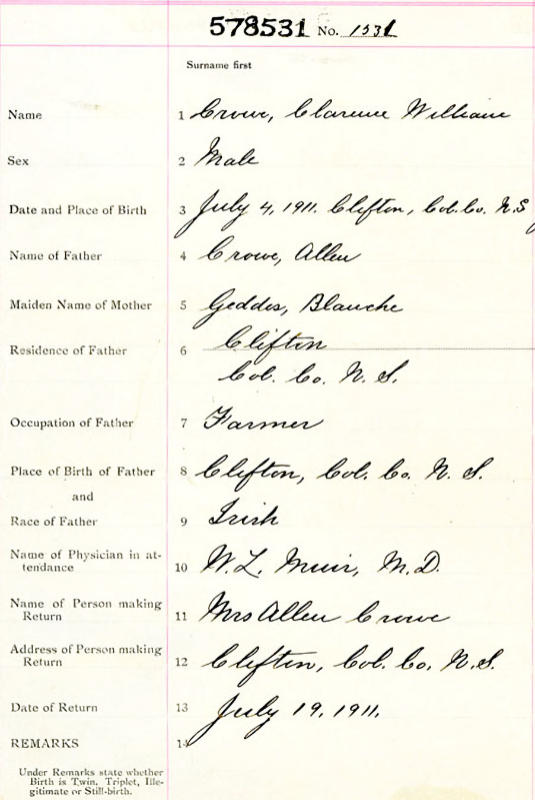 578531 No. 1531
Surname first
Name 1 Crowe, Clarence William
Sex 2 Male
Date and Place of Birth 3 July 4, 1911. Clifton, Col. Co. N.S
Name of Father 4 Crowe, Allen
Maiden Name of Mother 5 Geddes, Blanche
Residence of Father 6 Clifton
Col. Co. N. S.
Occupation of Father 7 Farmer
Place of Birth of Father 8 Clifton, Col. Co. N. S.
and
Race of Father 9 Irish
Name of Physician in at-
tendance 10 W. L. Muir, M.D.
Name of Person making
Return 11 Mrs Allen Crowe
Address of Person making
Return 12 Clifton, Col. Co. N.S.
Date of Return 13 July 19, 1911.
REMARKS 14
Under Remarks state whether
Birth is Twin, Triplet, Ille-
gitimate or Still-birth.